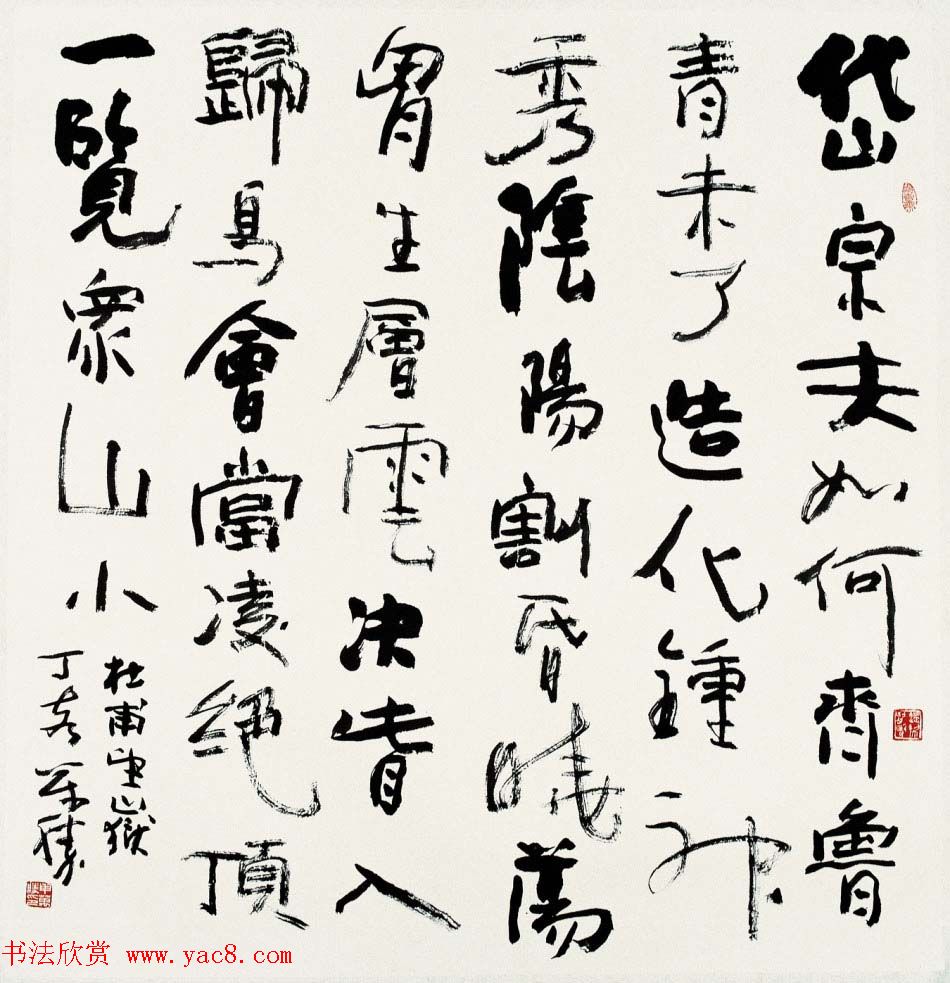 岱宗夫如何齊魯
青未了造化鍾神
秀陰陽割昏曉蕩
胷生層雲決眥入
歸鳥會當凌絕頂
一覽衆山小
杜甫望嶽
丁亥萬勝
书法欣赏 www.yac8.com